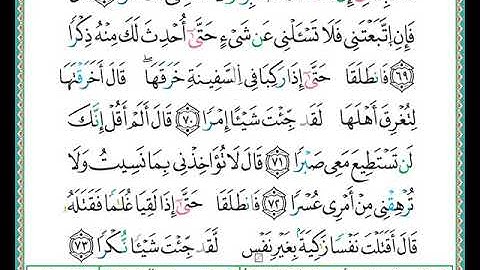 فَإِنِ اِتَّبَعْتَنِي فَلَا تَسْـَٔلْنِي عَن شَيْءٍ حَتَّىٰٓ أُحْدِثَ لَكَ مِنْهُ ذِكْرًا
٦٩ فَانطَلَقَا حَتَّىٰٓ إِذَا رَكِبَا فِي اِلسَّفِينَةِ خَرَقَهَا ۖ قَالَ أَخَرَقْتَهَا
لِتُغْرِقَ أَهْلَهَا لَقَد جِّئْتَ شَيْـًٔا إِمْرًا ٧٠ قَالَ أَلَمْ أَقُلْ إِنَّكَ
لَن تَسْتَطِيعَ مَعِي صَبْرًا ٧١ قَالَ لَا تُؤَاخِذْنِي بِمَا نَسِيتُ وَلَا
تُرْهِقْنِي مِنْ أَمْرِي عُسْرًا ٧٢ فَانطَلَقَا حَتَّىٰٓ إِذَا لَقِيَا غُلَٰمًا فَقَتَلَهُۥ
قَالَ أَقَتَلْتَ نَفْسًا زَٰكِيَةً بِغَيْرِ نَفْسٍ لَّقَد جِّئْتَ شَيْـًٔا نُّكْرًا ٧٣